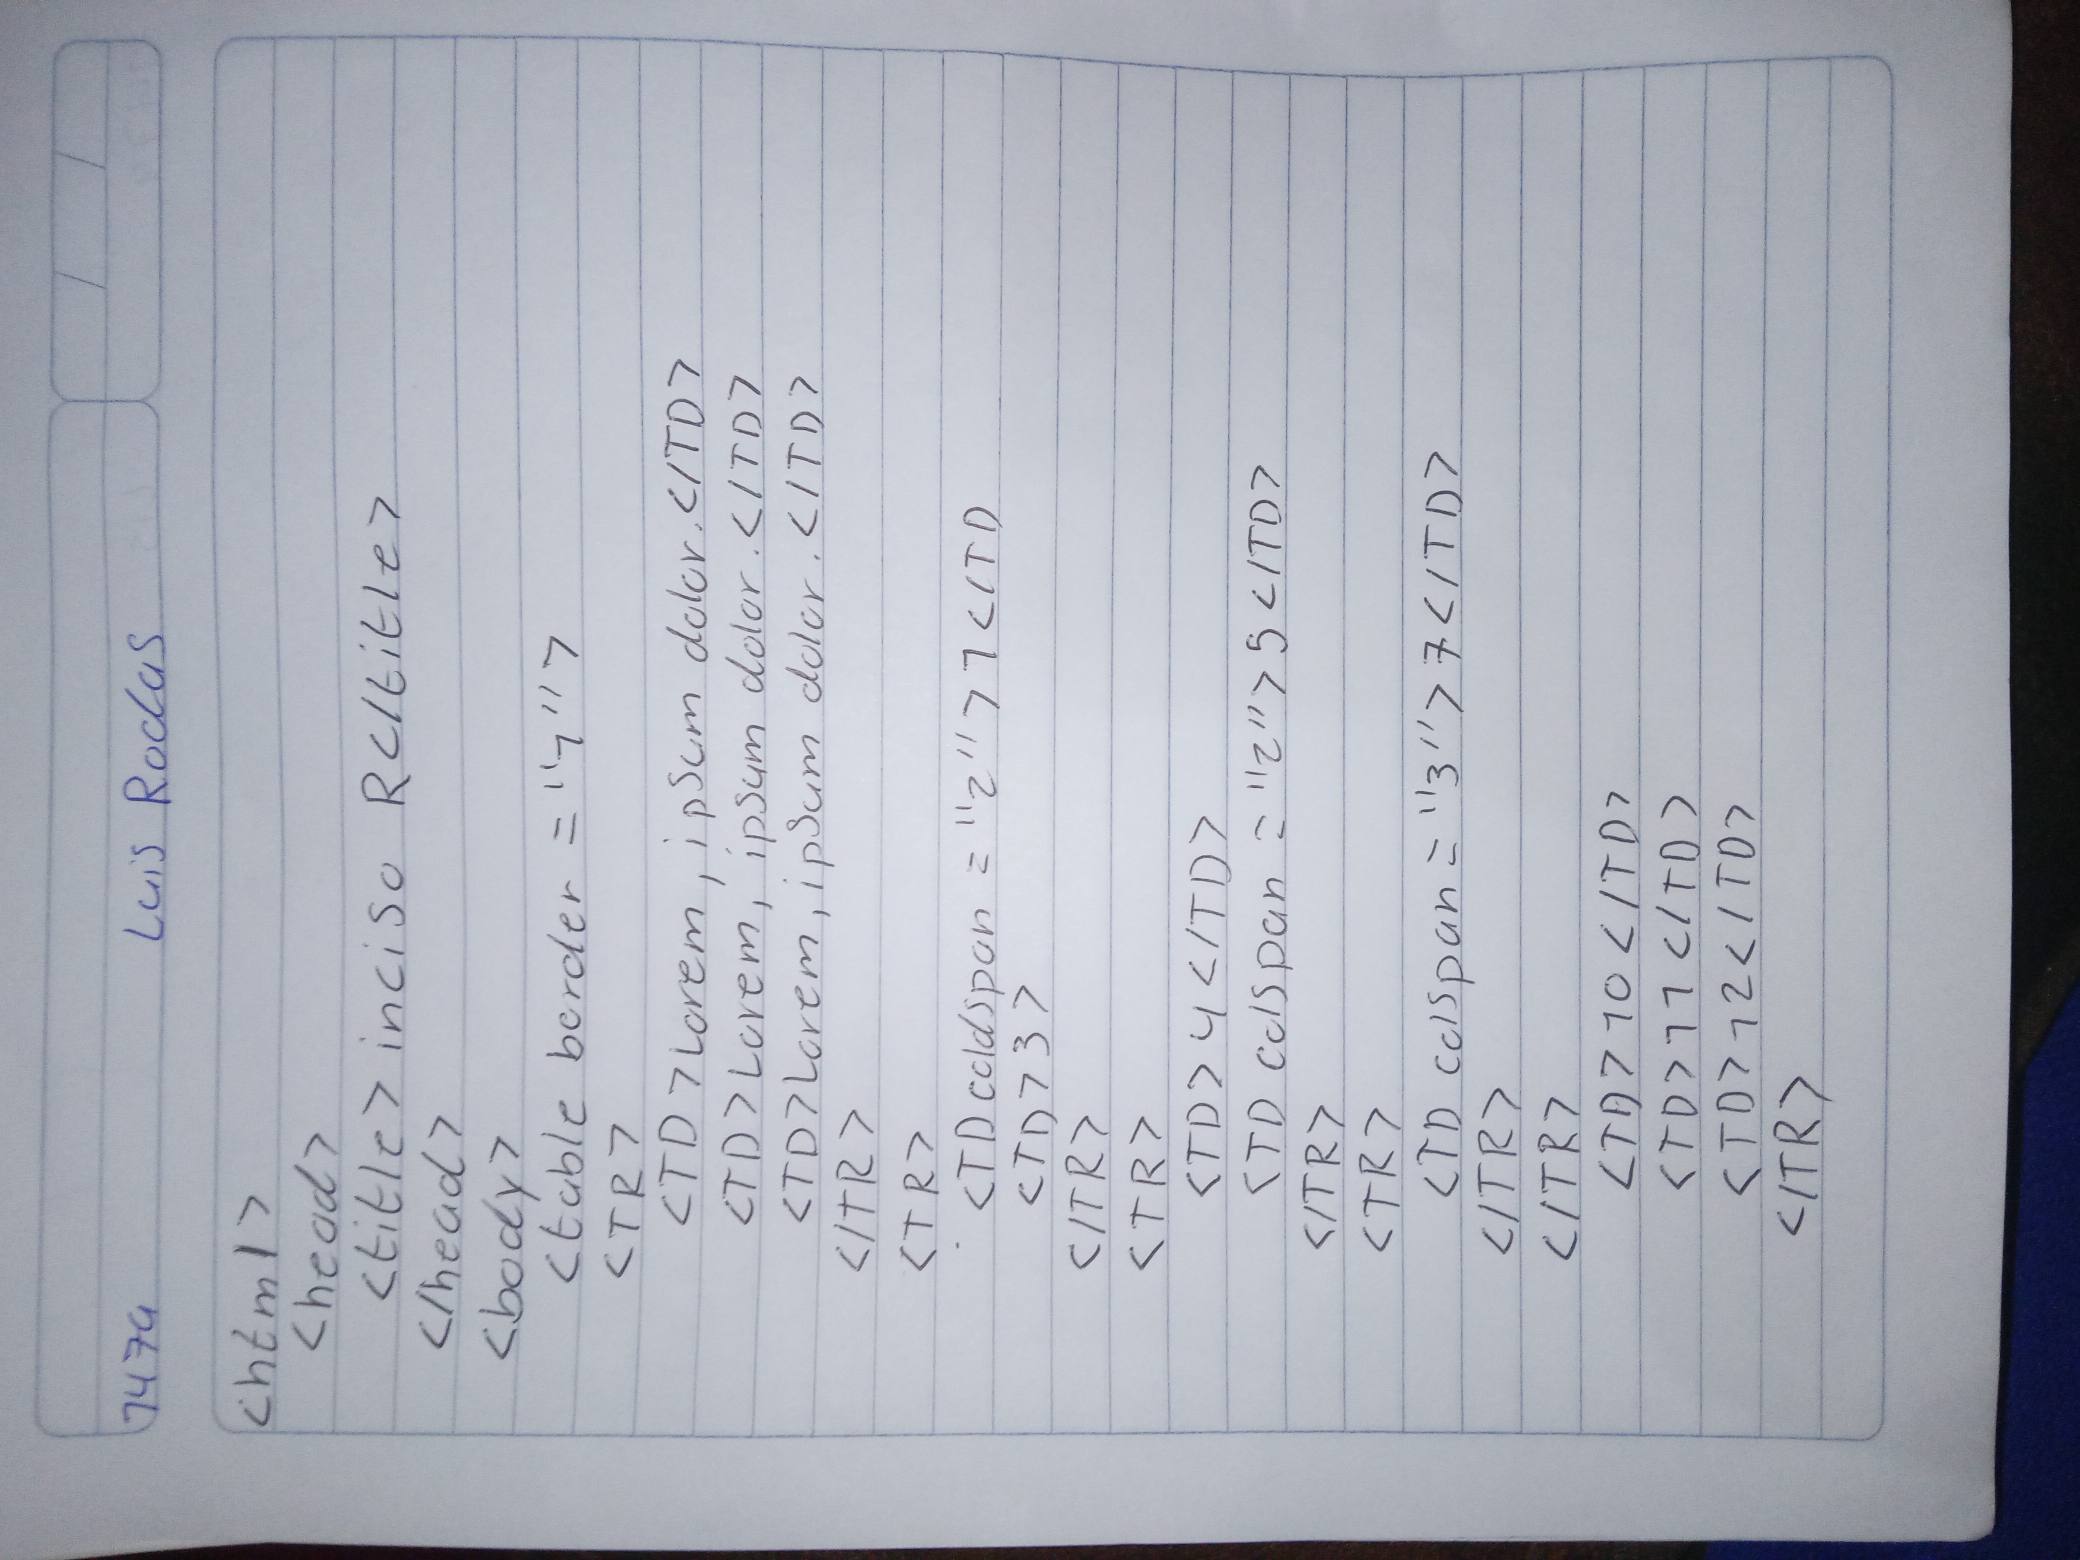 7479 Luis Rodas
<html>
<head>
<title>inciso R</title>
</head>
<body>
<table border="1">
<TR>
<TD>Lorem, ipsum dolor.</TD>
<TD>Lorem, ipsum dolor.</TD>
<TD>Lorem, ipsum dolor.</TD>
</TR>
<TR>
<TD coldspan="2">1</TD
<TD>3>
</TR>
<TR>
<TD>4</TD>
<TD colspan="2">5</TD>
</TR>
<TR>
<TD colspan="3">7</TD>
</TR>
</TR>
<TD>10</TD>
<TD>11</TD>
<TD>12</TD>
</TR>